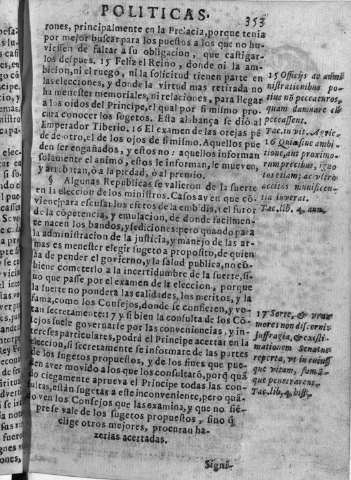 POLITICAS. 353
rones, principalmente en la Prelacia, porque tenia
por mejor buscar para los puestos a los que no hu-
viessen de faltar a su obligacion, que castigar-
los despues. 15 Feliz el Reino, donde ni la am-
bicion, ni el ruego, ni la solicitud tienen parte en
las elecciones, y donde la virtud mas retirada no
ha menester memoriales, ni relaciones, para llegar
a los oidos del Principe, el qual por si mismo pro-
cura conocer los sugetos. Esta alabança se dió al
Emperador Tiberio. 16 El examen de las orejas pé-
de de otro, el de los ojos de si mismo. Aquellos pue
den ser engañados, y estos no: aquellos informan
solamente el animo, estos le informan, le mueven,
y arrebatan, ó a la piedad, ó al premio.
§ Algunas Republicas se valieron de la suerte
en la eleccion de los ministros. Casos ay en que có-
viene, para escusar los efectos de la embidia, el furor
de la cópetencia, y emulacion, de donde facilmen-
te nacen los bandos, y sediciones: pero quando para
la administracion de la justicia, y manejo de las ar-
mas es menester elegir sugeto a proposito, de quien
ha de pender el govierno, y la salud publica, no có-
biene cometerlo a la incertidumbre de la suerte, si-
no que passe por el examen de la eleccion, porque
la suerte no pondera las calidades, los meritos, y la
fama, como los Consejos, donde se confieren, y vo-
tan secretamente: 17 y si bien la consulta de los Có-
sejos suele governarse por las conveniencias, y in-
teresses particulares, podrá el Principe acertar en la
eleccion, si secretamente se informare de las partes
de los sugetos propuestos, y de los fines que pue-
den aver movido a los que los consultaró, porq̃ quá
do ciegamente aprueva el Principe todas las con-
sultas, están sugetas a este inconveniente, pero quá-
do ven los Consejos que las examina, y que no sié-
pre se vale de los sugetos propuestos, sino q̃
elige otros mejores, procuran ha-
zerlas acertadas.
Signi-
15 Officijs ac admi
nistrationibus po-
tius nō peccaturos,
quam damnare cū
peccassent.
Tac. in vit. Agric.
16 Quia sine ambi-
tione, aut proximo-
rum precibus, igno
tos etiam, ac vltro
accitos munificen-
tia iuverat.
Tac. lib. 4. ann.
17 Sorte, & vrna
mores non discerni:
suffragia, & existi-
mationem Senatus
reperta, vt in cuius-
que vitam, famā-
que penetrarent.
Tac. lib. 4. hist.